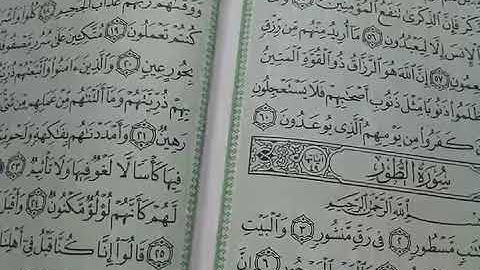 فَإِنَّ ٱلذِّكْرَىٰ تَنفَعُ ٱلْمُؤْمِنِينَ
ٱلْإِنسَ إِلَّا لِيَعْبُدُونِ ٥٦ مَآ أُرِيدُ مِنْهُم مِّن رِّزْقٍ
٥٧ إِنَّ ٱللَّهَ هُوَ ٱلرَّزَّاقُ ذُو ٱلْقُوَّةِ ٱلْمَتِينُ
ظَلَمُوا۟ ذَنُوبًا مِّثْلَ ذَنُوبِ أَصْحَٰبِهِمْ فَلَا يَسْتَعْجِلُونِ
كَفَرُوا۟ مِن يَوْمِهِمُ ٱلَّذِى يُوعَدُونَ ٦٠
سُورَةُ ٱلطُّورِ آياتها ٤٩
ٱللَّهِ ٱلرَّحْمَٰنِ ٱلرَّحِيمِ
مَّسْطُورٍ ٢ فِى رَقٍّ مَّنشُورٍ ٣ وَٱلْبَيْتِ
٦ إِنَّ
وَوَقَىٰهُمْ رَبُّهُمْ عَذَابَ ٱلْجَحِيمِ
كُنتُمْ تَعْمَلُونَ ١٩ مُتَّكِـِٔينَ عَلَىٰ سُرُرٍ مَّصْفُوفَةٍ
بِحُورٍ عِينٍ ٢٠ وَٱلَّذِينَ ءَامَنُوا۟ وَٱتَّبَعَتْهُمْ
ذُرِّيَّتَهُمْ وَمَآ أَلَتْنَٰهُم مِّنْ عَمَلِهِم مِّن
رَهِينٌ ٢١ وَأَمْدَدْنَٰهُم بِفَٰكِهَةٍ وَلَحْمٍ
فِيهَا كَأْسًا لَّا لَغْوٌ فِيهَا وَلَا تَأْثِيمٌ ٢٣
لَّهُمْ كَأَنَّهُمْ لُؤْلُؤٌ مَّكْنُونٌ ٢٤ وَأَقْبَلَ
٢٥ قَالُوٓا۟ إِنَّا كُنَّا قَبْلُ فِىٓ أَهْلِنَا